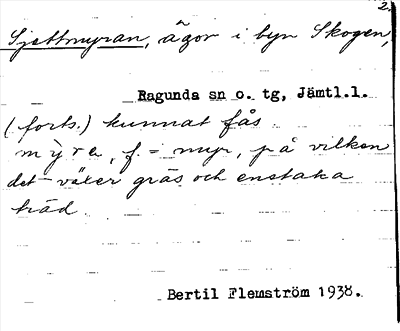 2.
Sjettmyran, ägor i byn Skogen,
Ragunda sn o. tg, Jämtl.l.
(forts.) kunnat fås
mỳra, f. = myr, på vilken
det växer gräs och enstaka
träd.
Bertil Flemström 1938.